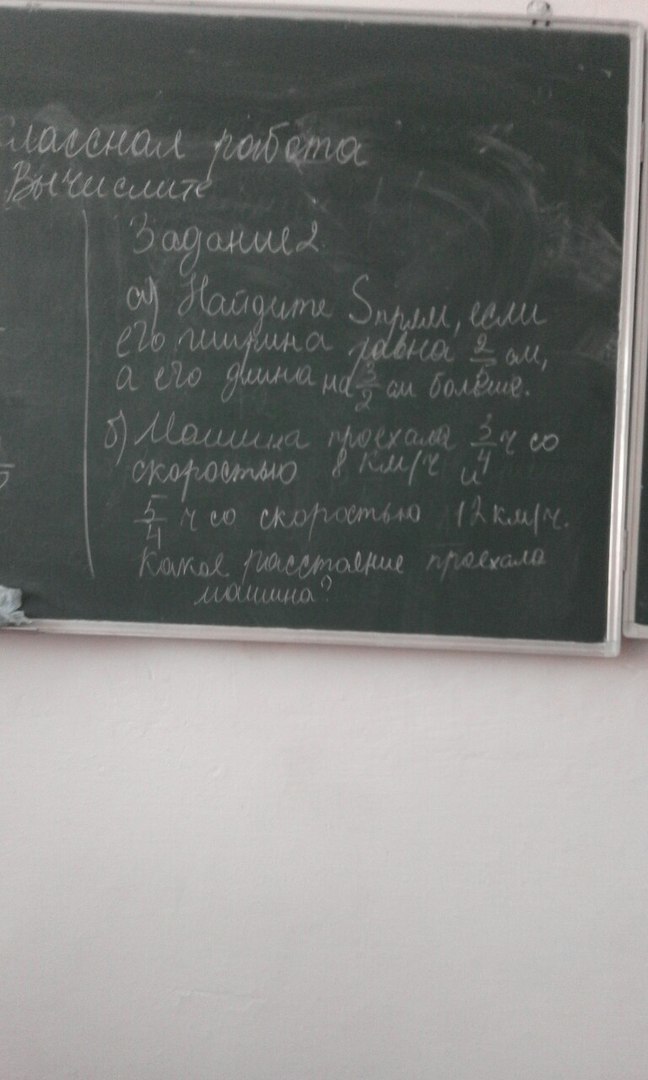 Классная работа
Вычислите
Задание 2.
а) Найдите Sпрям, если
его ширина равна 2/5 см,
а его длина на 3/2 см больше.
б) Машина проехала 3/4 ч со
скоростью 8 км/ч и
5/4 ч со скоростью 12 км/ч.
Какое расстояние проехала
машина?